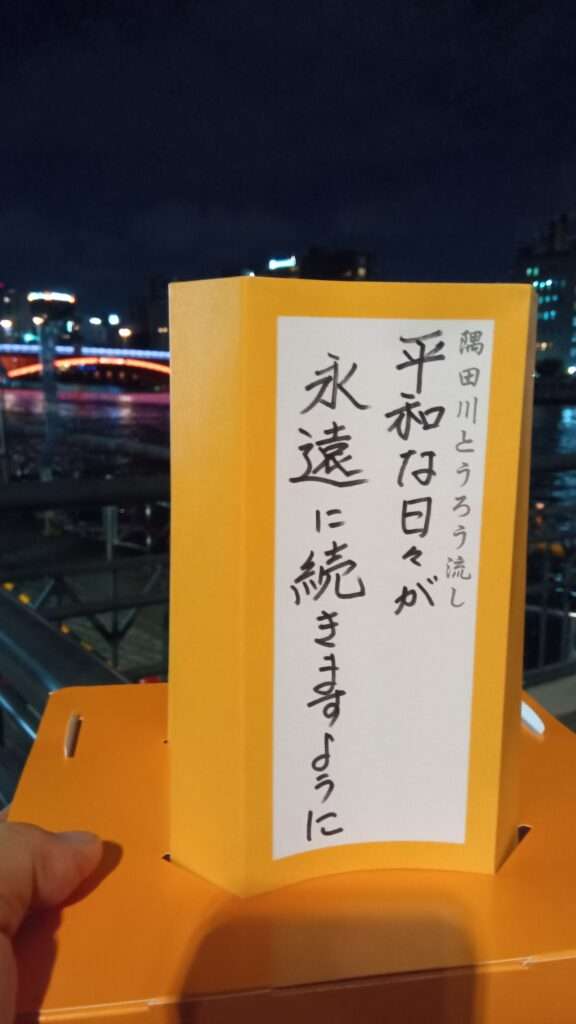 隅田川とうろう流し
平和な日々が
永遠に続きますように